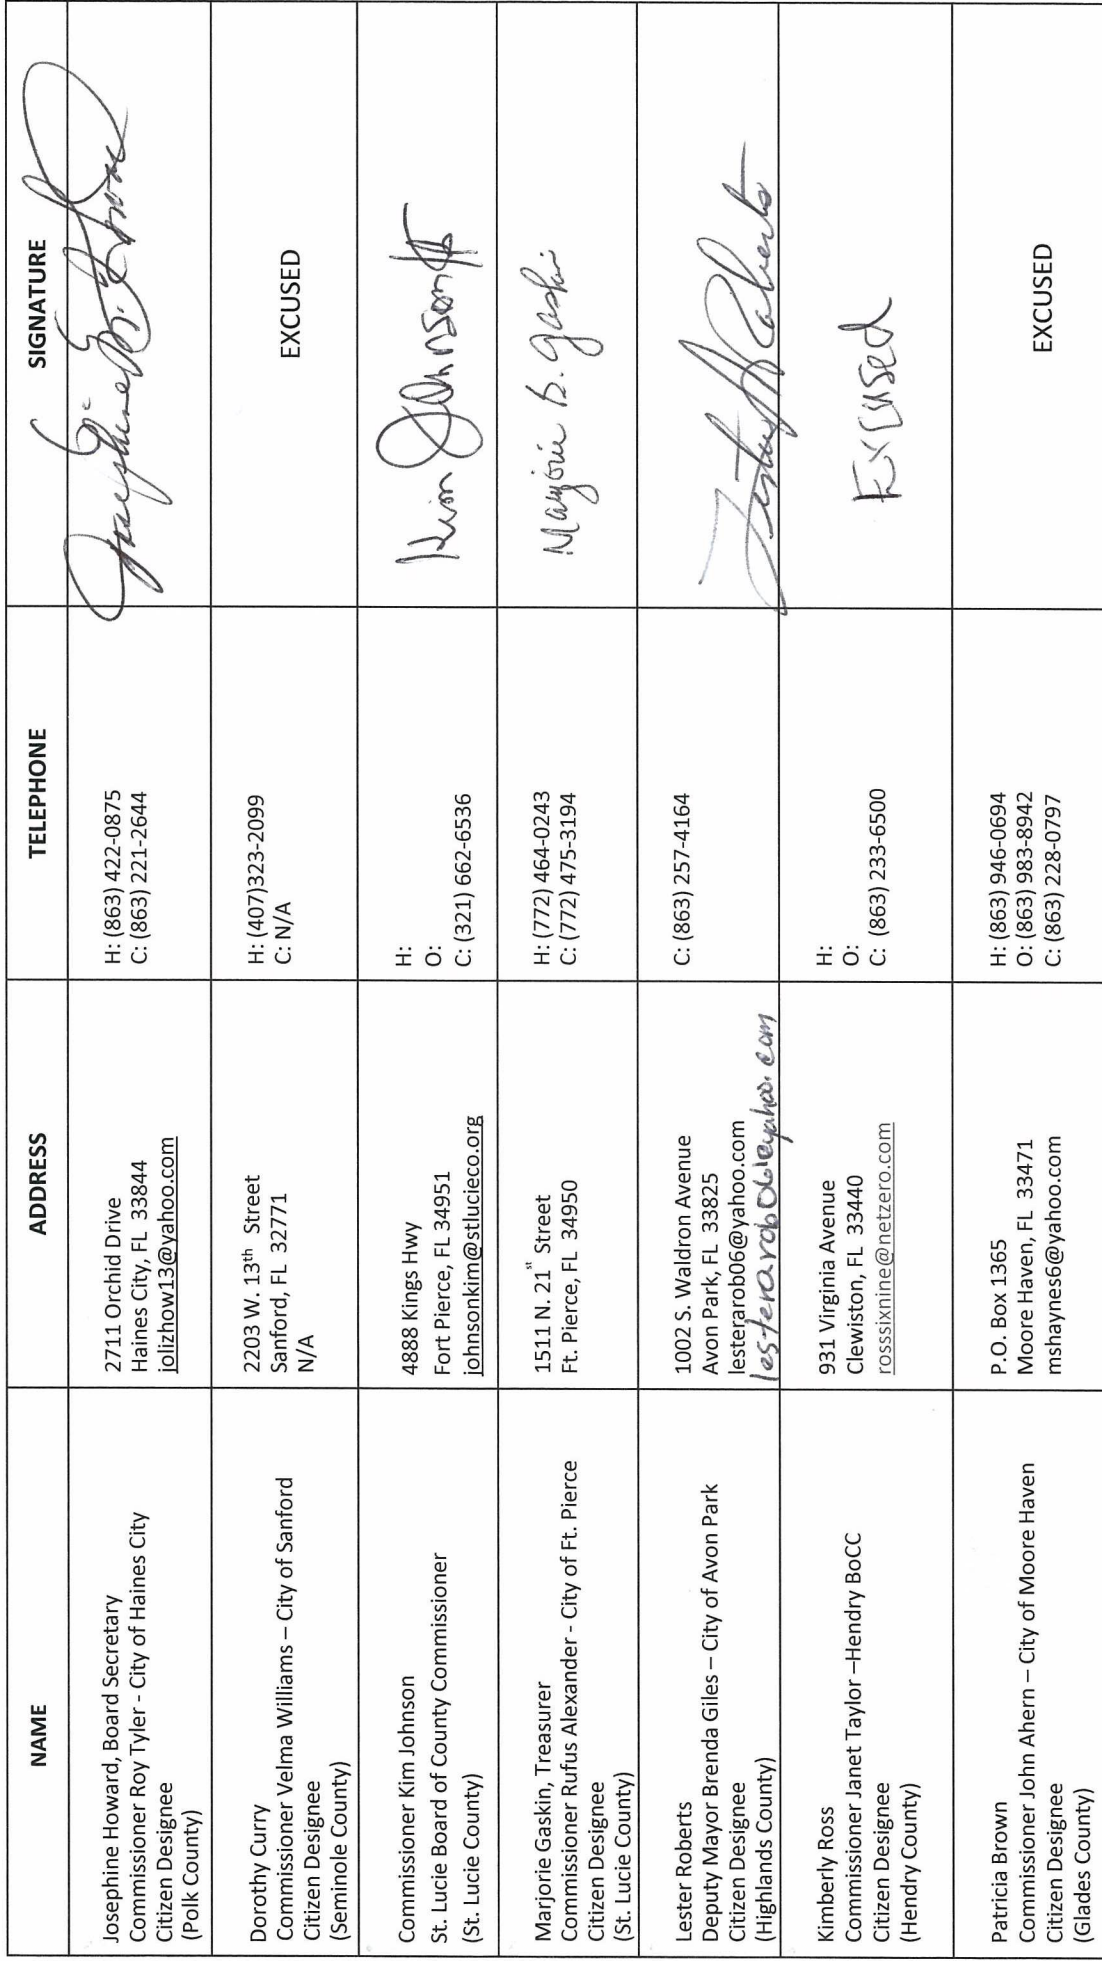 NAME
ADDRESS
TELEPHONE
SIGNATURE
Josephine Howard, Board Secretary
Commissioner Roy Tyler - City of Haines City
Citizen Designee
(Polk County)
2711 Orchid Drive
Haines City, FL 33844
jolizhow13@yahoo.com
H: (863) 422-0875
C: (863) 221-2644
Josephine
Dorothy Curry
Commissioner Velma Williams – City of Sanford
Citizen Designee
(Seminole County)
2203 W. 13th Street
Sanford, FL 32771
N/A
H: (407)323-2099
C: N/A
EXCUSED
Commissioner Kim Johnson
St. Lucie Board of County Commissioner
(St. Lucie County)
4888 Kings Hwy
Fort Pierce, FL 34951
johnsonkim@stlucieco.org
H:
O:
C: (321) 662-6536
Kim Johnson
Marjorie Gaskin, Treasurer
Commissioner Rufus Alexander - City of Ft. Pierce
Citizen Designee
(St. Lucie County)
1511 N. 21st Street
Ft. Pierce, FL 34950
H: (772) 464-0243
C: (772) 475-3194
Marjorie B. Gaskin
Lester Roberts
Deputy Mayor Brenda Giles – City of Avon Park
Citizen Designee
(Highlands County)
1002 S. Waldron Avenue
Avon Park, FL 33825
lesterarob06@yahoo.com
C: (863) 257-4164
Lester A Roberts
Kimberly Ross
Commissioner Janet Taylor –Hendry BoCC
Citizen Designee
(Hendry County)
931 Virginia Avenue
Clewiston, FL 33440
rosssixnine@netzero.com
H:
O:
C: (863) 233-6500
Excused
Patricia Brown
Commissioner John Ahern – City of Moore Haven
Citizen Designee
(Glades County)
P.O. Box 1365
Moore Haven, FL 33471
mshaynes6@yahoo.com
H: (863) 946-0694
O: (863) 983-8942
C: (863) 228-0797
EXCUSED